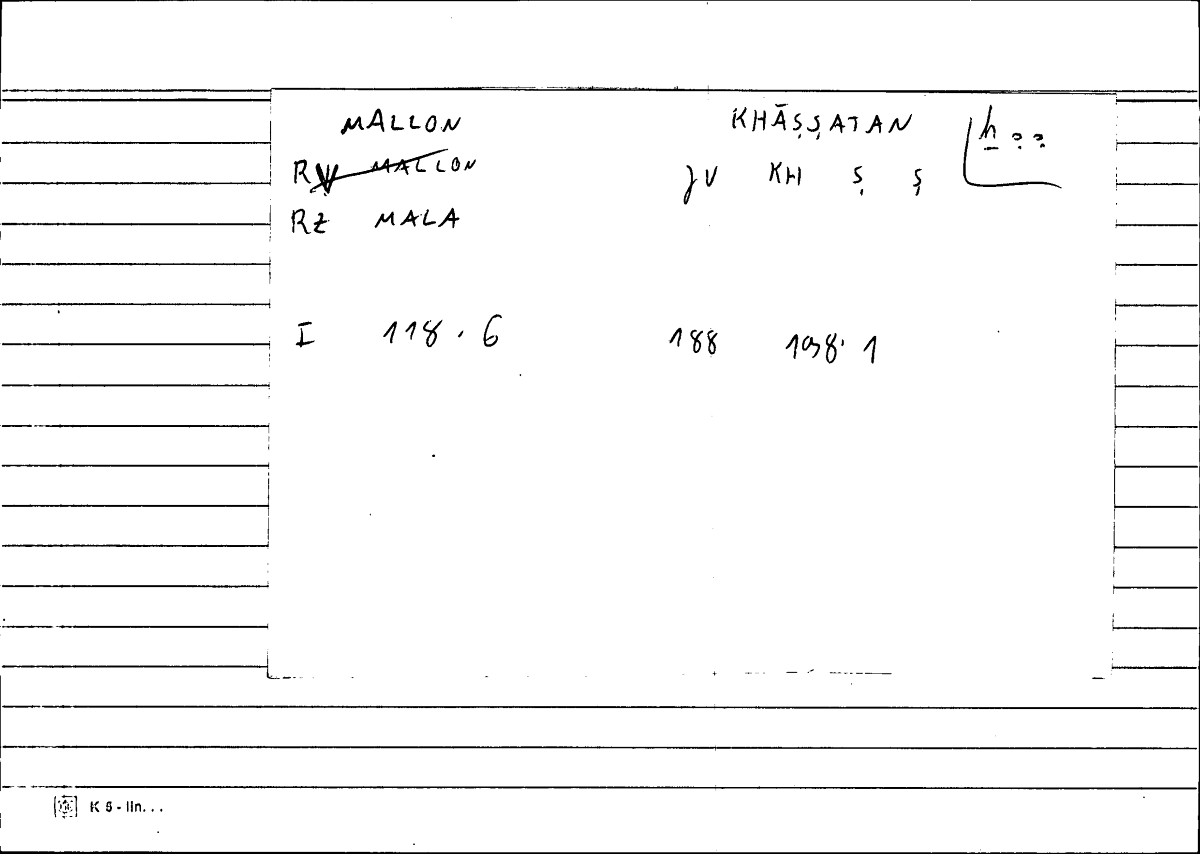 MALLON KHĀṢṢATAN h ? ?
R MALLON JV KH Ṣ Ṣ
RZ MALA
I 118. 6 188 198. 1
K 5 - lin. . .